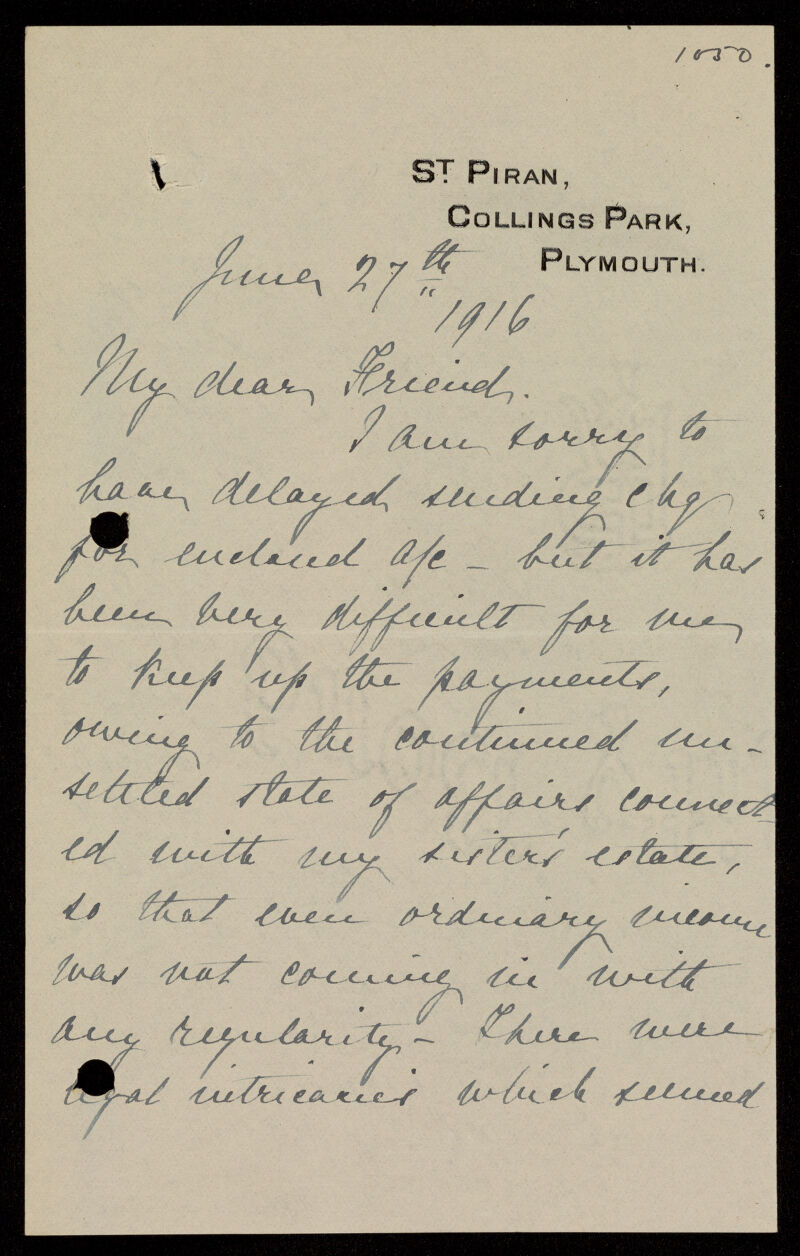 1050.
ST. PIRAN,
COLLINGS PARK,
PLYMOUTH.
June 27th
1916
My dear Friend.
I am sorry to
have delayed sending chq
for enclosed a/c – but it has
been very difficult for me
to keep up the payments,
owing to the continued un-
settled state of affairs connect-
ed with my sister's estate,
so that even ordinary income
was not coming in with
any regularity – There were
legal intricacies which seemed